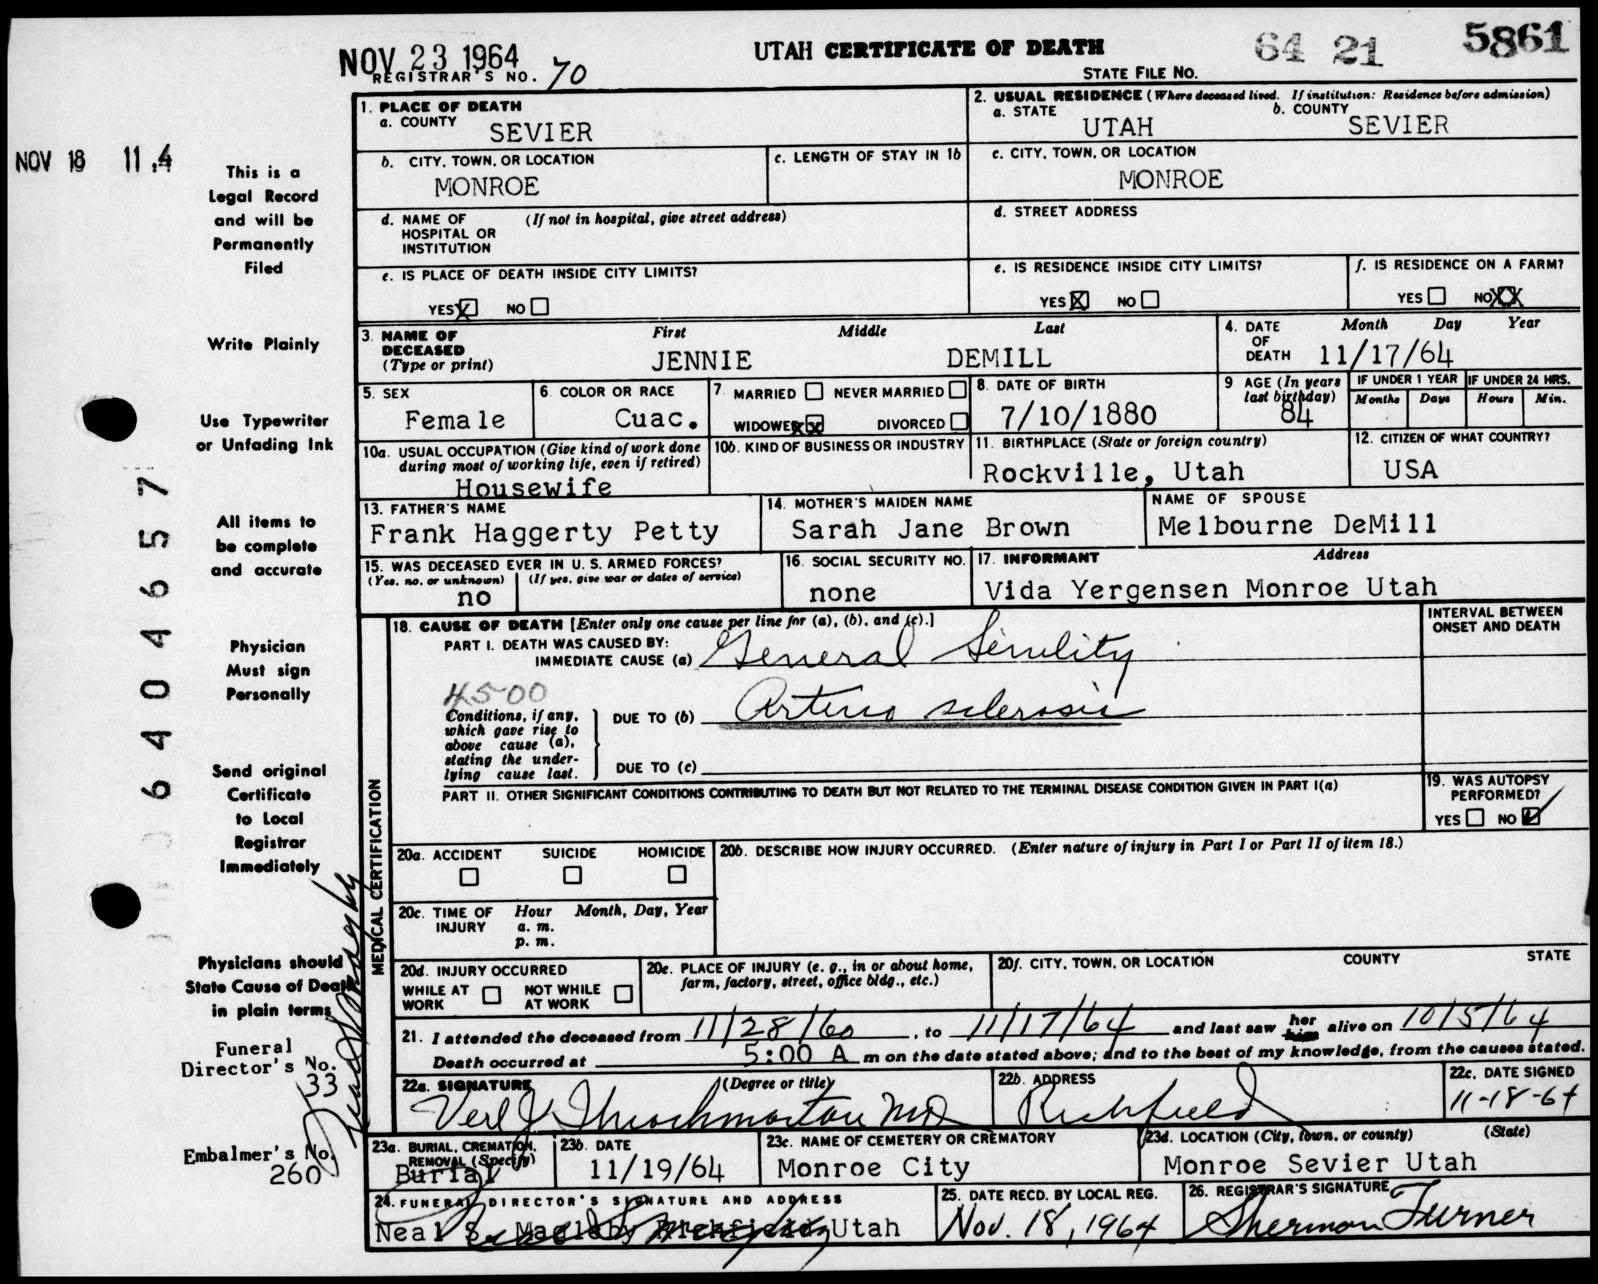 NOV 23 1964
UTAH CERTIFICATE OF DEATH
64 21 5861
REGISTRAR'S NO. 70
STATE FILE NO.
NOV 18 11.4
This is a
Legal Record
and will be
Permanently
Filed
Write Plainly
Use Typewriter
or Unfading Ink
All items to
be complete
and accurate
Physician
Must sign
Personally
Send original
Certificate
to Local
Registrar
Immediately
Physicians should
State Cause of Death
in plain terms
Funeral
Director's No.
33
Embalmer's No.
260
6404657
1. PLACE OF DEATH
a. COUNTY SEVIER
2. USUAL RESIDENCE (Where deceased lived. If institution: Residence before admission)
a. STATE UTAH b. COUNTY SEVIER
b. CITY, TOWN, OR LOCATION MONROE
c. LENGTH OF STAY IN 1b
c. CITY, TOWN, OR LOCATION MONROE
d. NAME OF HOSPITAL OR INSTITUTION (If not in hospital, give street address)
d. STREET ADDRESS
e. IS PLACE OF DEATH INSIDE CITY LIMITS?
YES X NO
e. IS RESIDENCE INSIDE CITY LIMITS?
YES X NO
f. IS RESIDENCE ON A FARM?
YES NO XX
3. NAME OF DECEASED (Type or print)
First Middle Last
JENNIE DEMILL
4. DATE OF DEATH Month Day Year
11/17/64
5. SEX
Female
6. COLOR OR RACE
Cuac.
7. MARRIED NEVER MARRIED
WIDOWED XX DIVORCED
8. DATE OF BIRTH
7/10/1880
9 AGE (In years last birthday)
84
IF UNDER 1 YEAR Months Days
IF UNDER 24 HRS. Hours Min.
10a. USUAL OCCUPATION (Give kind of work done during most of working life, even if retired)
Housewife
10b. KIND OF BUSINESS OR INDUSTRY
11. BIRTHPLACE (State or foreign country)
Rockville, Utah
12. CITIZEN OF WHAT COUNTRY?
USA
13. FATHER'S NAME
Frank Haggerty Petty
14. MOTHER'S MAIDEN NAME
Sarah Jane Brown
NAME OF SPOUSE
Melbourne DeMill
15. WAS DECEASED EVER IN U. S. ARMED FORCES?
(Yes, no, or unknown) (If yes, give war or dates of service)
no
16. SOCIAL SECURITY NO.
none
17. INFORMANT Address
Vida Yergensen Monroe Utah
MEDICAL CERTIFICATION
18. CAUSE OF DEATH [Enter only one cause per line for (a), (b), and (c).]
INTERVAL BETWEEN ONSET AND DEATH
PART I. DEATH WAS CAUSED BY:
IMMEDIATE CAUSE (a) General Senility
4500
Conditions, if any, which gave rise to above cause (a), stating the underlying cause last.
DUE TO (b) Arterio sclerosis
DUE TO (c)
PART II. OTHER SIGNIFICANT CONDITIONS CONTRIBUTING TO DEATH BUT NOT RELATED TO THE TERMINAL DISEASE CONDITION GIVEN IN PART I(a)
19. WAS AUTOPSY PERFORMED?
YES NO
20a. ACCIDENT SUICIDE HOMICIDE
20b. DESCRIBE HOW INJURY OCCURRED. (Enter nature of injury in Part I or Part II of item 18.)
20c. TIME OF INJURY Hour a. m. p. m. Month, Day, Year
20d. INJURY OCCURRED
WHILE AT WORK NOT WHILE AT WORK
20e. PLACE OF INJURY (e. g., in or about home, farm, factory, street, office bldg., etc.)
20f. CITY, TOWN, OR LOCATION COUNTY STATE
21. I attended the deceased from 11/28/60, to 11/17/64 and last saw her him alive on 10/5/64
Death occurred at 5:00 A m on the date stated above; and to the best of my knowledge, from the causes stated.
22a. SIGNATURE (Degree or title)
Verl J Throckmorton MD
22b. ADDRESS
Richfield
22c. DATE SIGNED
11-18-64
23a. BURIAL, CREMATION, REMOVAL (Specify)
Burial
23b. DATE
11/19/64
23c. NAME OF CEMETERY OR CREMATORY
Monroe City
23d. LOCATION (City, town, or county) (State)
Monroe Sevier Utah
24. FUNERAL DIRECTOR'S SIGNATURE AND ADDRESS
Neal S. Magleby Richfield Utah
25. DATE RECD. BY LOCAL REG.
Nov. 18, 1964
26. REGISTRAR'S SIGNATURE
Sherman Turner